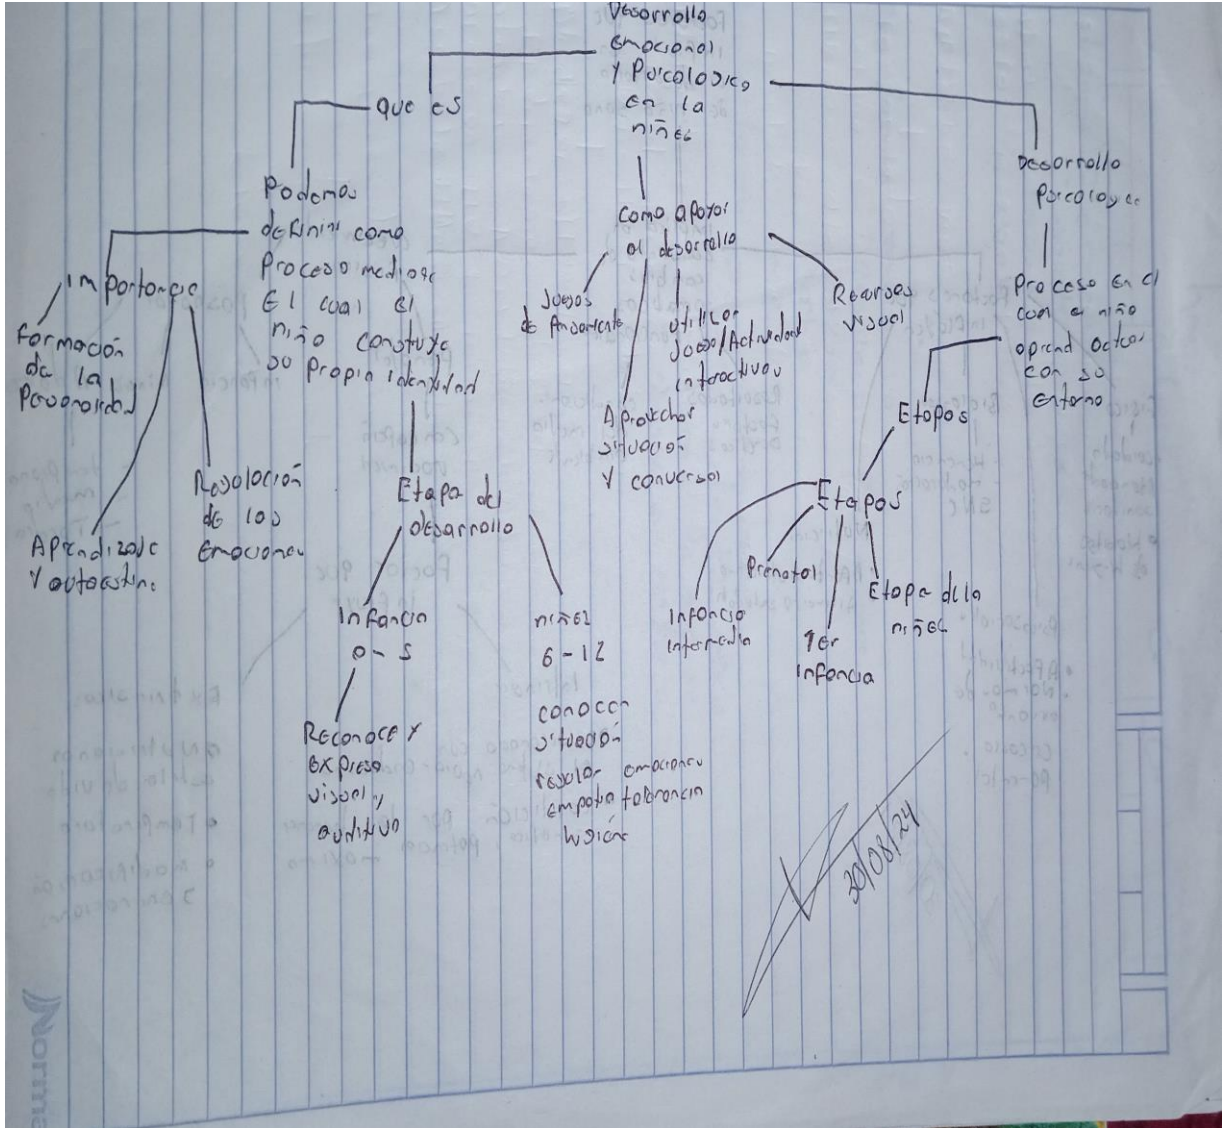 Desarrollo
emocional
y Psicologico
en la
niñez
que es
Podemos
definir como
Proceso mediante
El cual el
niño construye
su propia identidad
importancia
formación
de la
Personalidad
Aprendizaje
y autoestima
Regulación
de los
emociones
Etapa del
desarrollo
Infancia
0-5
Reconoce y
expresa
visual y
auditivo
niñez
6-12
conocer
situación
regular emociones
empatia tolerancia
como apoyar
al desarrollo
Juegos
de
Aprovechar
situación
y conversar
utilizar
Juego/Actividad
interactivas
Recursos
visual
Desarrollo
Psicologico
Proceso en el
cual el niño
aprend actuar
con su
entorno
Etapas
Etapas
Infancia
intermedia
Prenatal
1er
infancia
Etapa de la
niñez
30/08/24
Norma